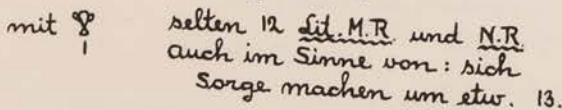 mit selten 12 Lit. M.R. und N.R.
auch im Sinne von: sich
Sorge machen um etw. 13.